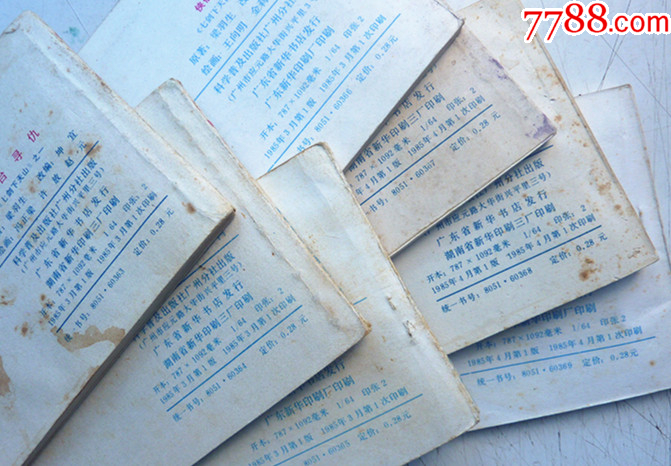 7788.com
台寻仇
《七剑下天山》之一
科学普及出版社广州分社出版
(广州市应元路大华街兴平里三号)
广东省新华书店发行
湖南省新华印刷三厂印刷
开本：787×1092毫米 1/64 印张：2
1985年3月第1版 1985年3月第1次印刷
统一书号：8051·60363 定价：0.28元
科学普及出版社广州分社出版
(广州市应元路大华街兴平里三号)
广东省新华书店发行
湖南省新华印刷三厂印刷
开本：787×1092毫米 1/64 印张：2
1985年3月第1版 1985年3月第1次印刷
统一书号：8051·60364 定价：0.28元
发行
广东新华印刷厂印刷
787×1092毫米 1/64 印张2
1985年3月第1次印刷
8051·60365 定价：0.28元
原著：梁羽生
绘画：王向明
科学普及出版社广州分社出版
(广州市应元路大华街兴平里三号)
广东省新华书店发行
广东新华印刷厂印刷
开本：787×1092毫米 1/64 印张：2
1985年3月第1版 1985年3月第1次印刷
统一书号：8051·60366 定价：0.28元
书店发行
湖南省新华印刷三厂印刷
开本：787×1092毫米 1/64 印张：2
1985年4月第1版 1985年4月第1次印刷
统一书号：8051·60367 定价：0.28元
广州分社出版
应元路大华街兴平里三号)
广东省新华书店发行
湖南省新华印刷三厂印刷
开本：787×1092毫米 1/64 印张：2
1985年4月第1版 1985年4月第1次印刷
统一书号：8051·60368 定价：0.28元
1/64 印张2
1985年4月第1版 1985年4月第1次印刷
统一书号：8051·60369 定价：0.28元